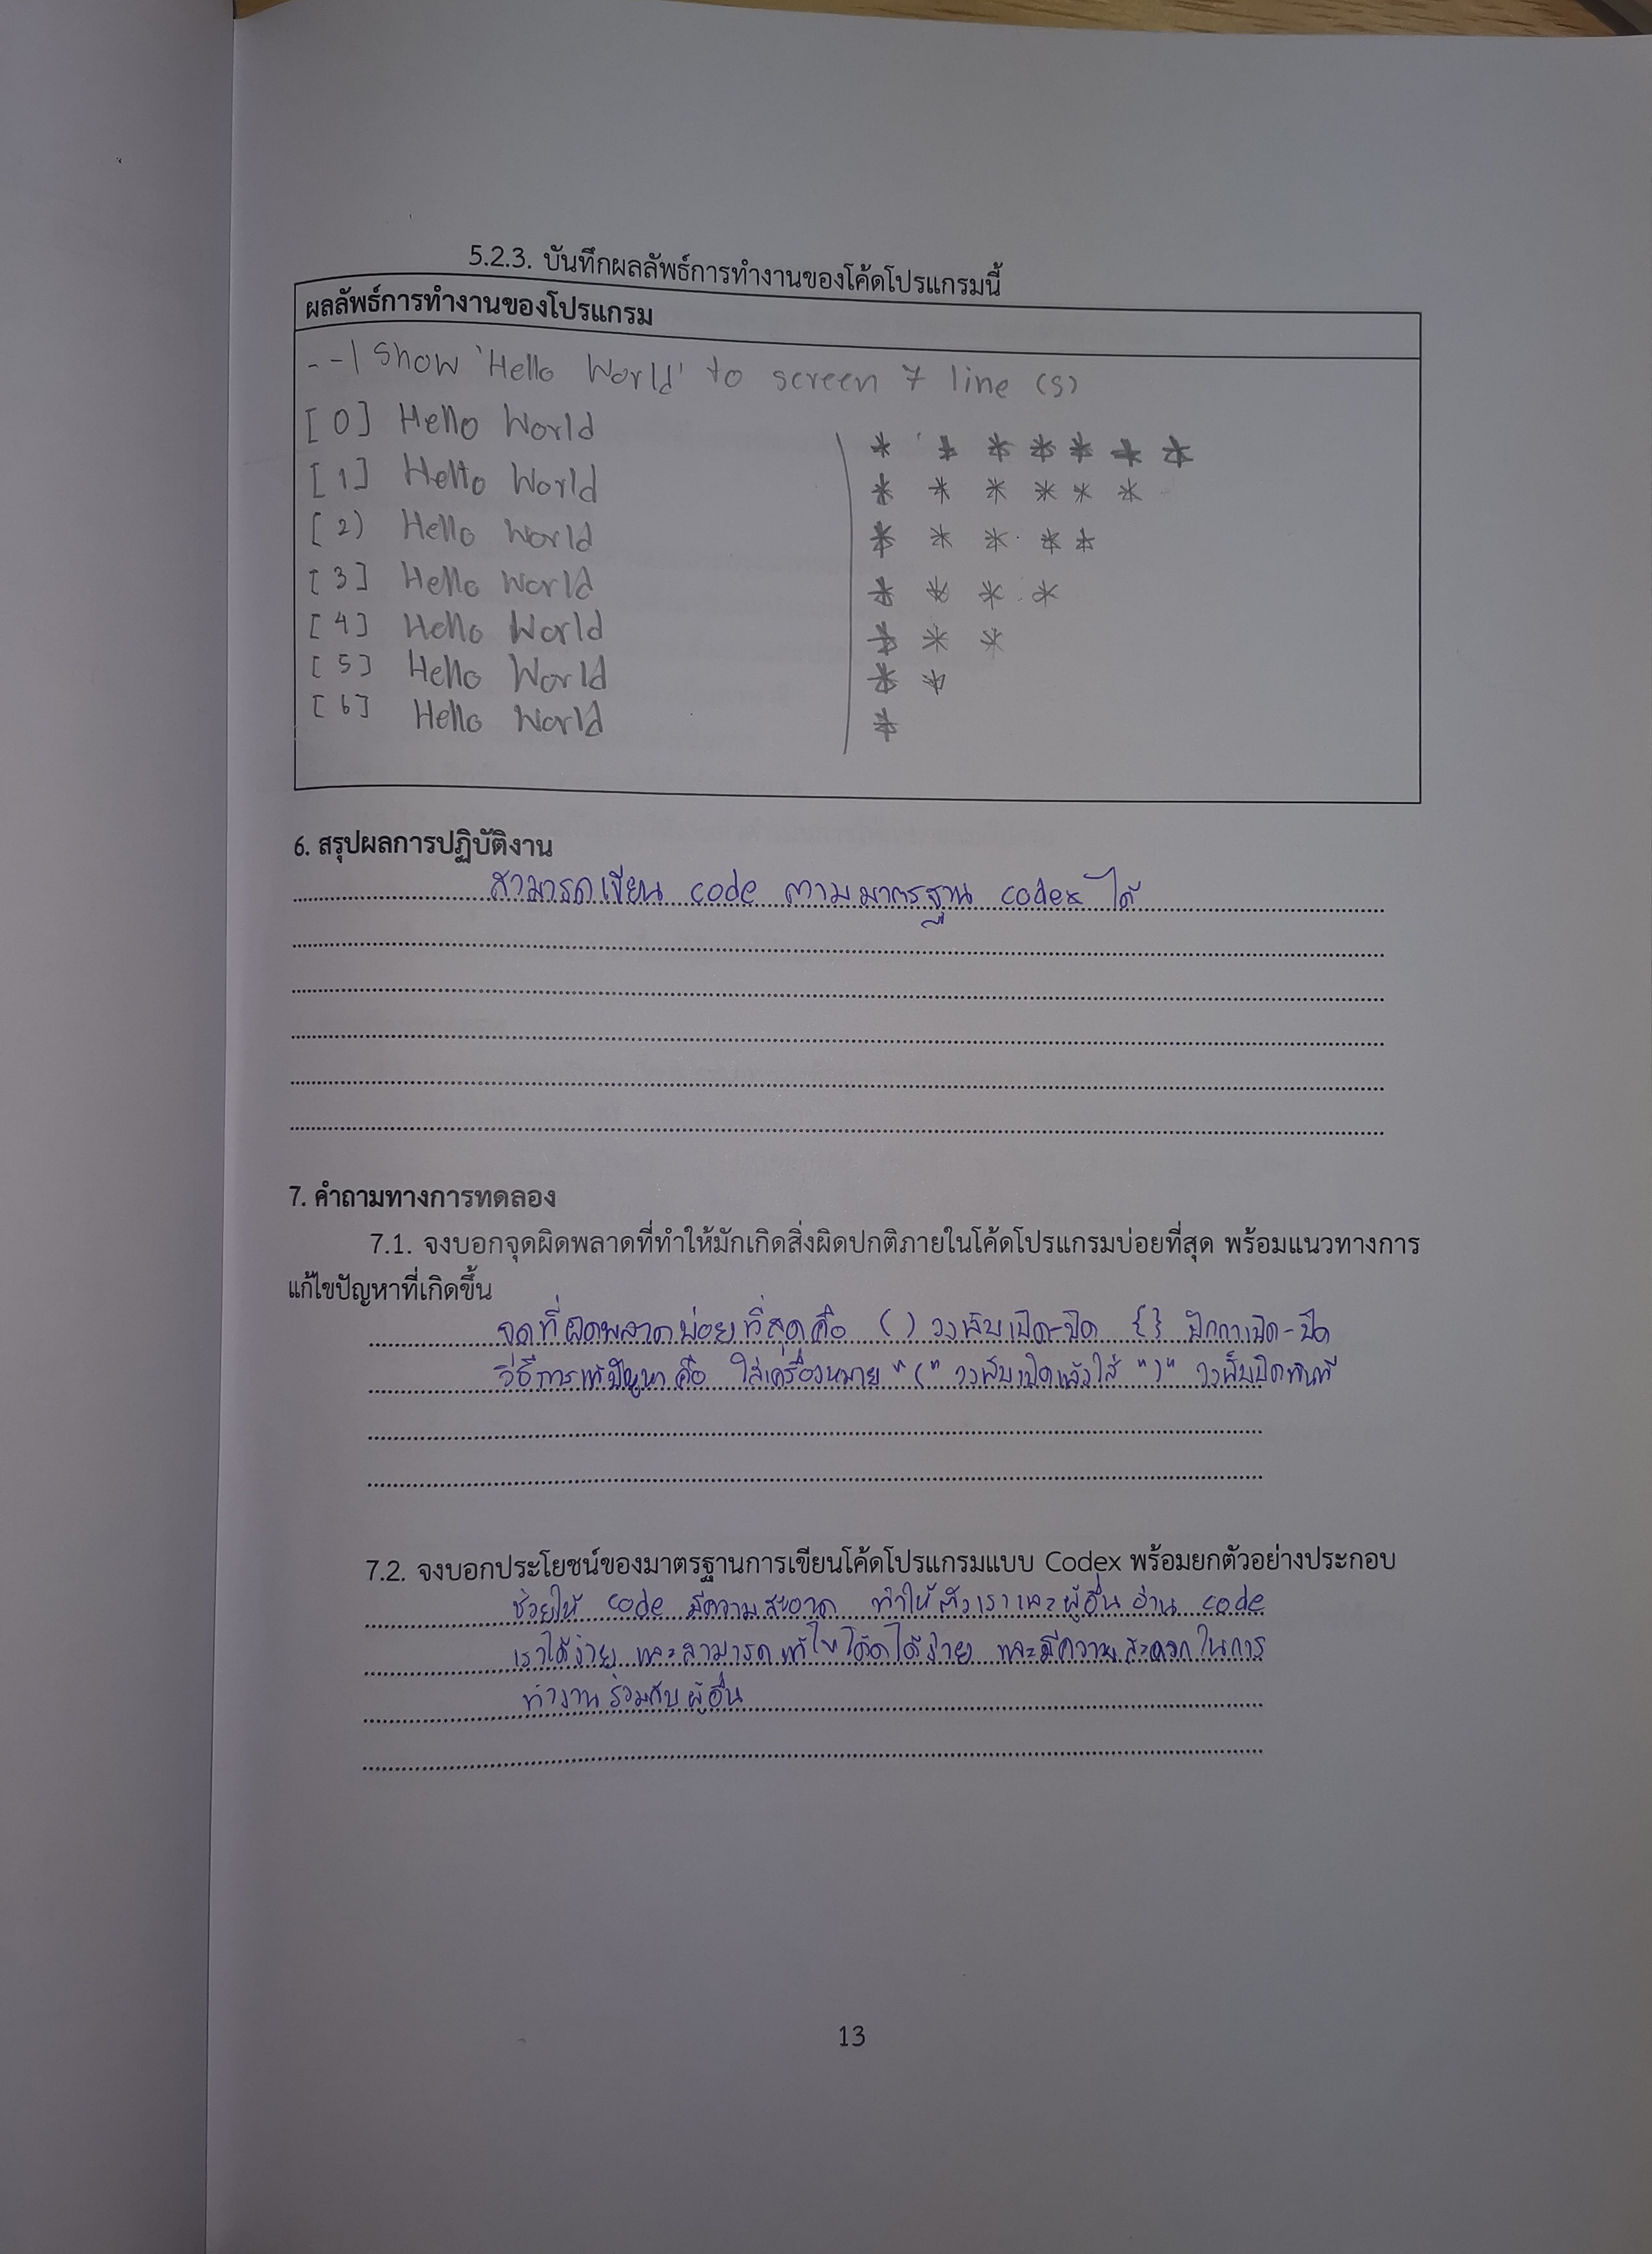 5.2.3. บันทึกผลลัพธ์การทำงานของโค้ดโปรแกรมนี้
ผลลัพธ์การทำงานของโปรแกรม
--| Show 'Hello World' to screen 7 line (s)
[0] Hello World
[1] Hello World
[2) Hello World
[3] Hello World
[4] Hello World
[5] Hello World
[6] Hello World
* * * * * * *
* * * * * *
* * * * *
* * * *
* * *
* *
*
6. สรุปผลการปฏิบัติงาน
สามารถเขียน code ตามมาตรฐาน codex ได้
7. คำถามทางการทดลอง
7.1. จงบอกจุดผิดพลาดที่ทำให้มักเกิดสิ่งผิดปกติภายในโค้ดโปรแกรมบ่อยที่สุด พร้อมแนวทางการ
แก้ไขปัญหาที่เกิดขึ้น
จุดที่ผิดพลาดบ่อยที่สุดคือ ( ) วงเล็บเปิด-ปิด {} ปีกกาเปิด-ปิด
วิธีการแก้ปัญหา คือ ใส่เครื่องหมาย "(" วงเล็บเปิดแล้วใส่ ")" วงเล็บปิดทันที
7.2. จงบอกประโยชน์ของมาตรฐานการเขียนโค้ดโปรแกรมแบบ Codex พร้อมยกตัวอย่างประกอบ
ช่วยให้ code มีความสะอาด ทำให้ตัวเราและผู้อื่นอ่าน code
เราได้ง่าย และสามารถแก้ไขโค้ดได้ง่าย และมีความสะดวกในการ
ทำงานร่วมกับผู้อื่น
13